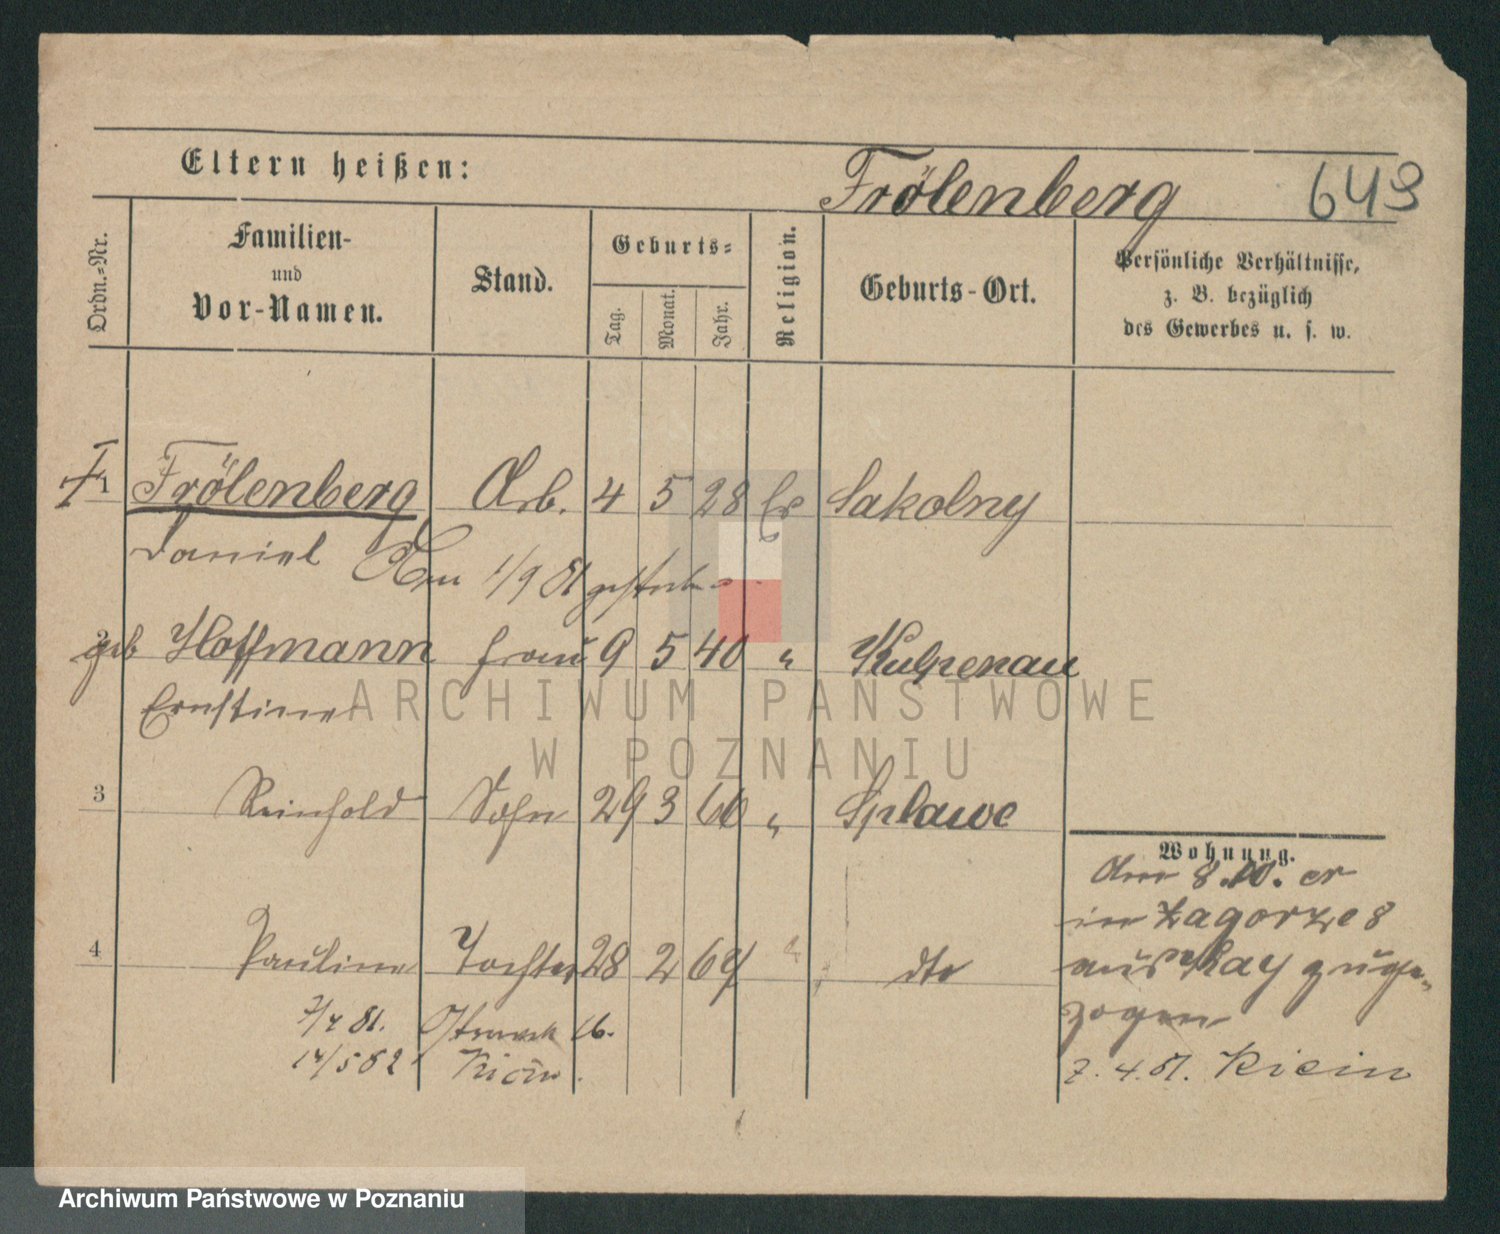 Eltern heißen:
Frölenberg 643
Ordn.-Nr.
Familien-
und
Vor-Namen.
Stand.
Geburts-
Tag.
Monat.
Jahr.
Religion.
Geburts-Ort.
Persönliche Verhältnisse,
z. B. bezüglich
des Gewerbes u. s. w.
1 Frölenberg Arb. 4 5 28 Ev Sakolny
Daniel Am 1/9 81 gestorben.
2 geb Hoffmann Frau 9 5 40 " Kulpenau
Ernstine
3 Reinhold Sohn 29 3 66 " Splawe
4 Pauline Tochter 28 2 69 " dto
7/4 81. 16.
14/5 82 Kicin.
Wohnung.
Am 8.10. er
in Zagorze 8
aus Ray zuge-
zogen
7. 4. 81. Kicin
ARCHIWUM PAŃSTWOWE
W POZNANIU
Archiwum Państwowe w Poznaniu